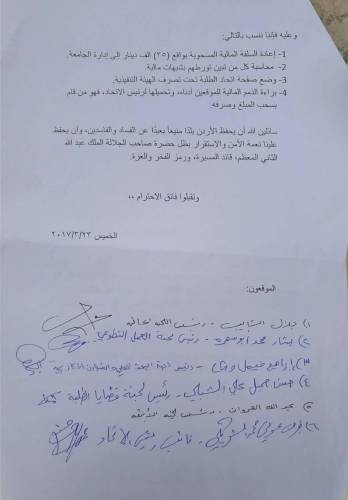 وعليه فإننا ننسب بالتالي:
1- إعادة السلفة المالية المسحوبة بواقع (٣٥) الف دينار إلى إدارة الجامعة.
2- محاسبة كل من تبين تورطهم بشبهات مالية.
3- وضع صفحة اتحاد الطلبة تحت تصرف الهيئة التنفيذية.
4- براءة الذمم المالية للموقعين أدناه، وتحميلها لرئيس الاتحاد، فهو من قام
بسحب المبلغ وصرفه.
سائلين الله أن يحفظ الأردن بلدًا منيعاً بعيدًا عن الفساد والفاسدين، وأن يحفظ
علينا نعمة الأمن والاستقرار بظل حضرة صاحب الجلالة الملك عبد الله
الثاني المعظم، قائد المسيرة، ورمز الفخر والعزة.
وتقبلوا فائق الاحترام ،،
الخميس ٢٠١٧/٣/٢٣
الموقعون:
١)
٢) بشار محمد ابو - رئيس لجنة العمل التطوعي
٣) إبراهيم - رئيس لجنة
٤) حسن جميل علي الشبلي - رئيس لجنة قضايا الطلبة
٥ عبد الله
٦) - نائب رئيس الاتحاد